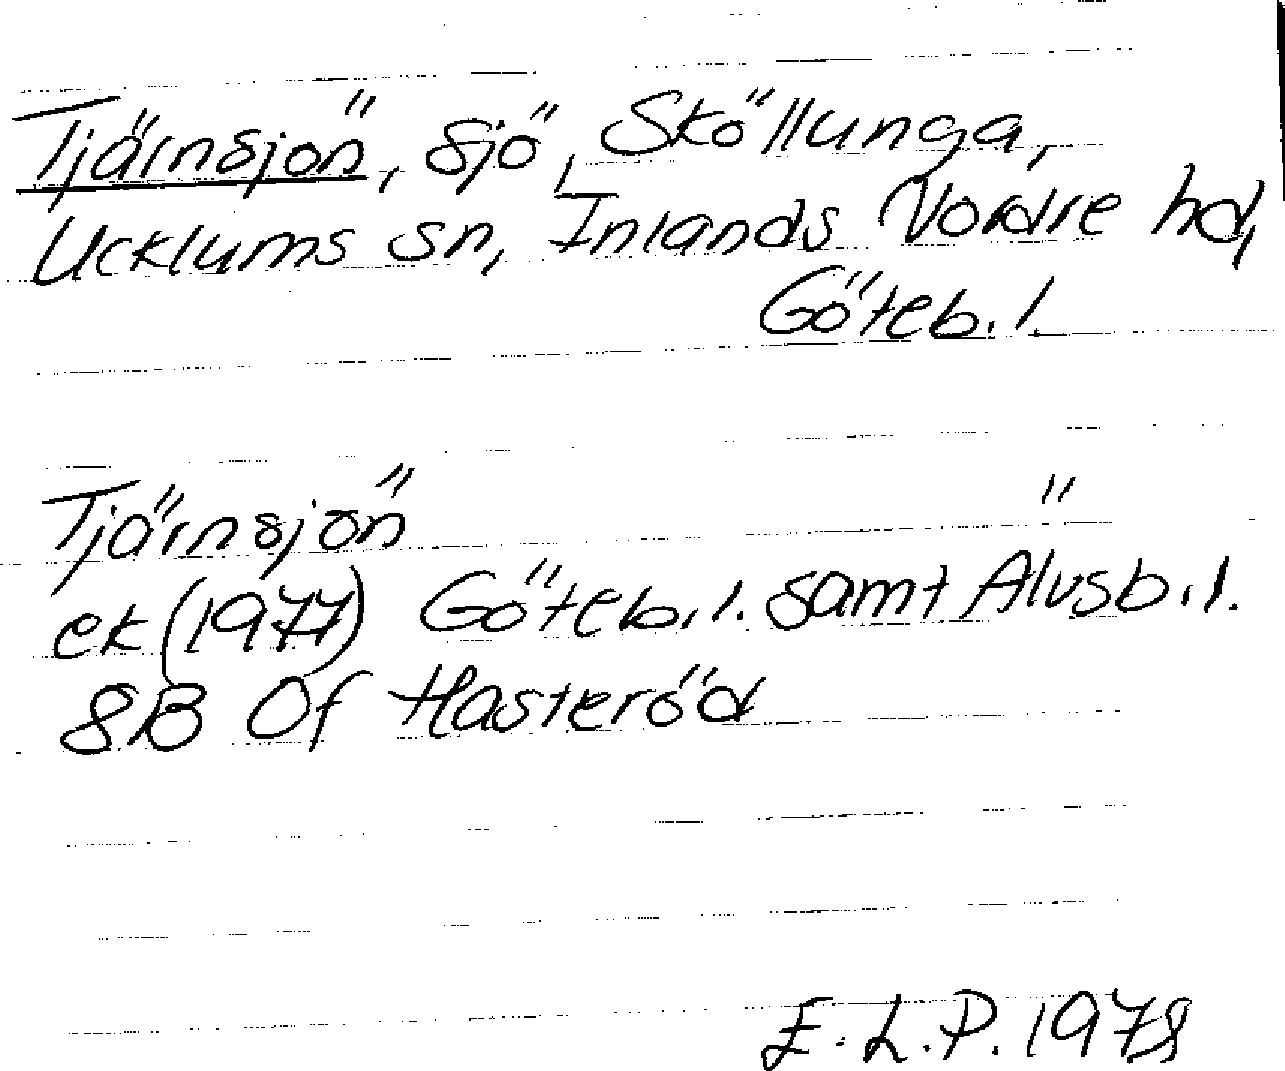 Tjärnsjön, sjö, Sköllunga,
Ucklums sn, Inlands Nordre hd,
Göteb. l.
Tjärnsjön
ek (1977) Göteb. l. samt Älvsb. l.
8B 0f Hasteröd
E. L. P. 1978